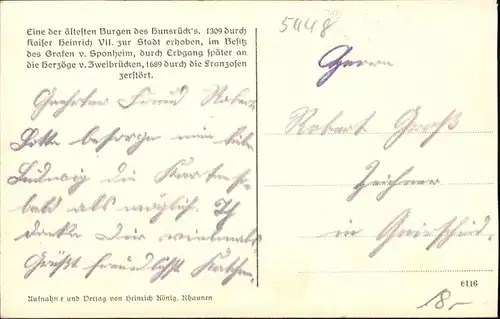 Eine der ältesten Burgen des Hunsrück's. 1309 durch
Kaiser Heinrich VII. zur Stadt erhoben, im Besitz
des Grafen v. Sponheim, durch Erbgang später an
die Herzöge v. Zweibrücken, 1689 durch die Franzosen
zerstört.
5448
Herrn
Robert Groß
Zeichner
in
Geehrter Freund Robert
Bitte besorge mir
Ludwig die Karten so
bald als möglich. Ich
danke Dir vielmals
Grüßt freundlichst
Aufnahme und Verlag von Heinrich König, Rhaunen
6116
18.-